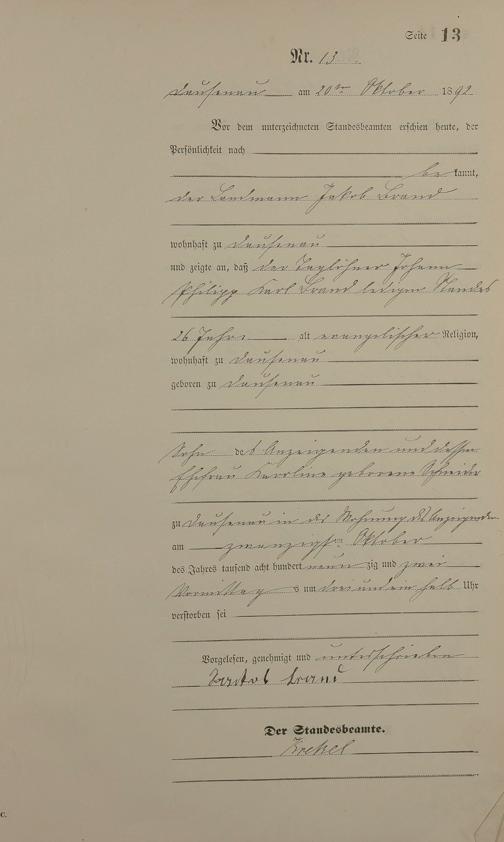 Seite 13
Nr. 13
Dausenau am 20ten Oktober 1892
Vor dem unterzeichneten Standesbeamten erschien heute, der
Persönlichkeit nach
be kannt,
der Landmann Jakob Brand
wohnhaft zu Dausenau
und zeigte an, daß der Taglöhner Johann
Philipp Karl Brand ledigen Standes
26 Jahre alt evangelischer Religion,
wohnhaft zu Dausenau
geboren zu Dausenau
Sohn des Anzeigenden und dessen
Ehefrau Karoline geborene Schneider
zu Dausenau in der Wohnung des Anzeigenden
am zwanzigsten Oktober
des Jahres tausend acht hundert neun zig und zwei
Vormittag s um drei und ein halb Uhr
verstorben sei
Vorgelesen, genehmigt und unterschrieben
Jackob Brand
Der Standesbeamte.
C.